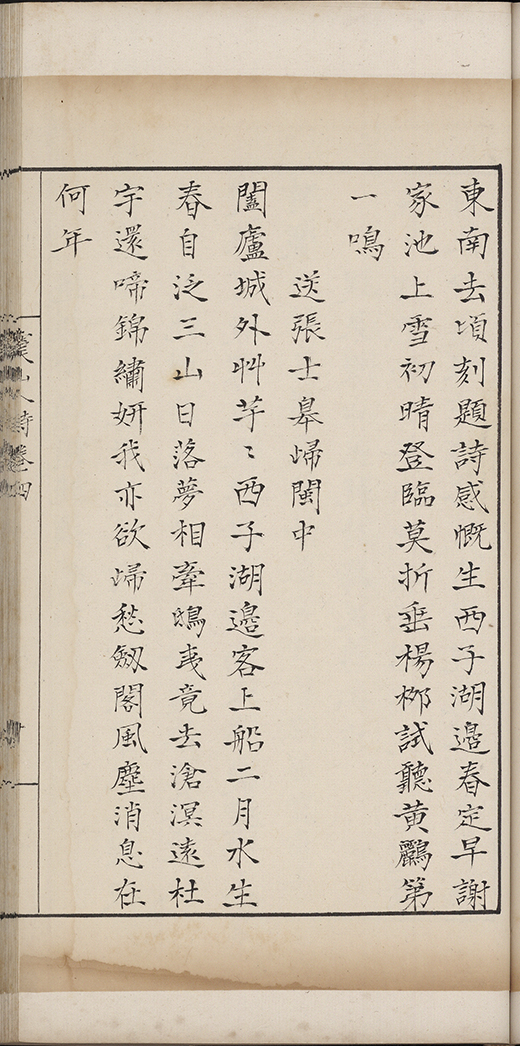 東南去頃刻題詩感慨生西子湖邊春定早謝
家池上雪初晴登臨莫折垂楊柳試聽黃鸝第
一鳴
送張士皋歸閩中
闔廬城外艸芊〻西子湖邊客上船二月水生
春自泛三山日落夢相牽鴟夷竟去滄溟遠杜
宇還啼錦繡妍我亦欲歸愁劔閣風塵消息在
何年